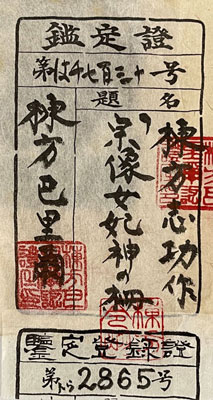 鑑定證
第はキ七百三十号
題名
棟方志功作
宗像女妃神の柵
棟方巴里爾
鑒定登録證
第トう2865号